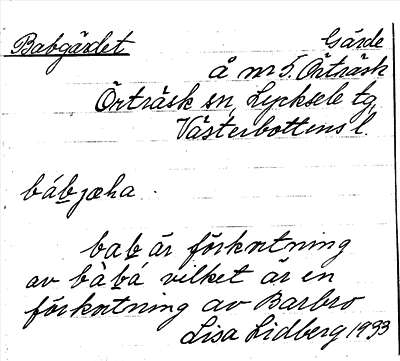 Babgärdet Gärde
å nr 5. Örträsk
Örträsk sn, Lycksele tg
Västerbottens l.
bábjæha.
bab är förkortning
av bàbá vilket är en
förkortning av Barbro
Lisa Lidberg 1933